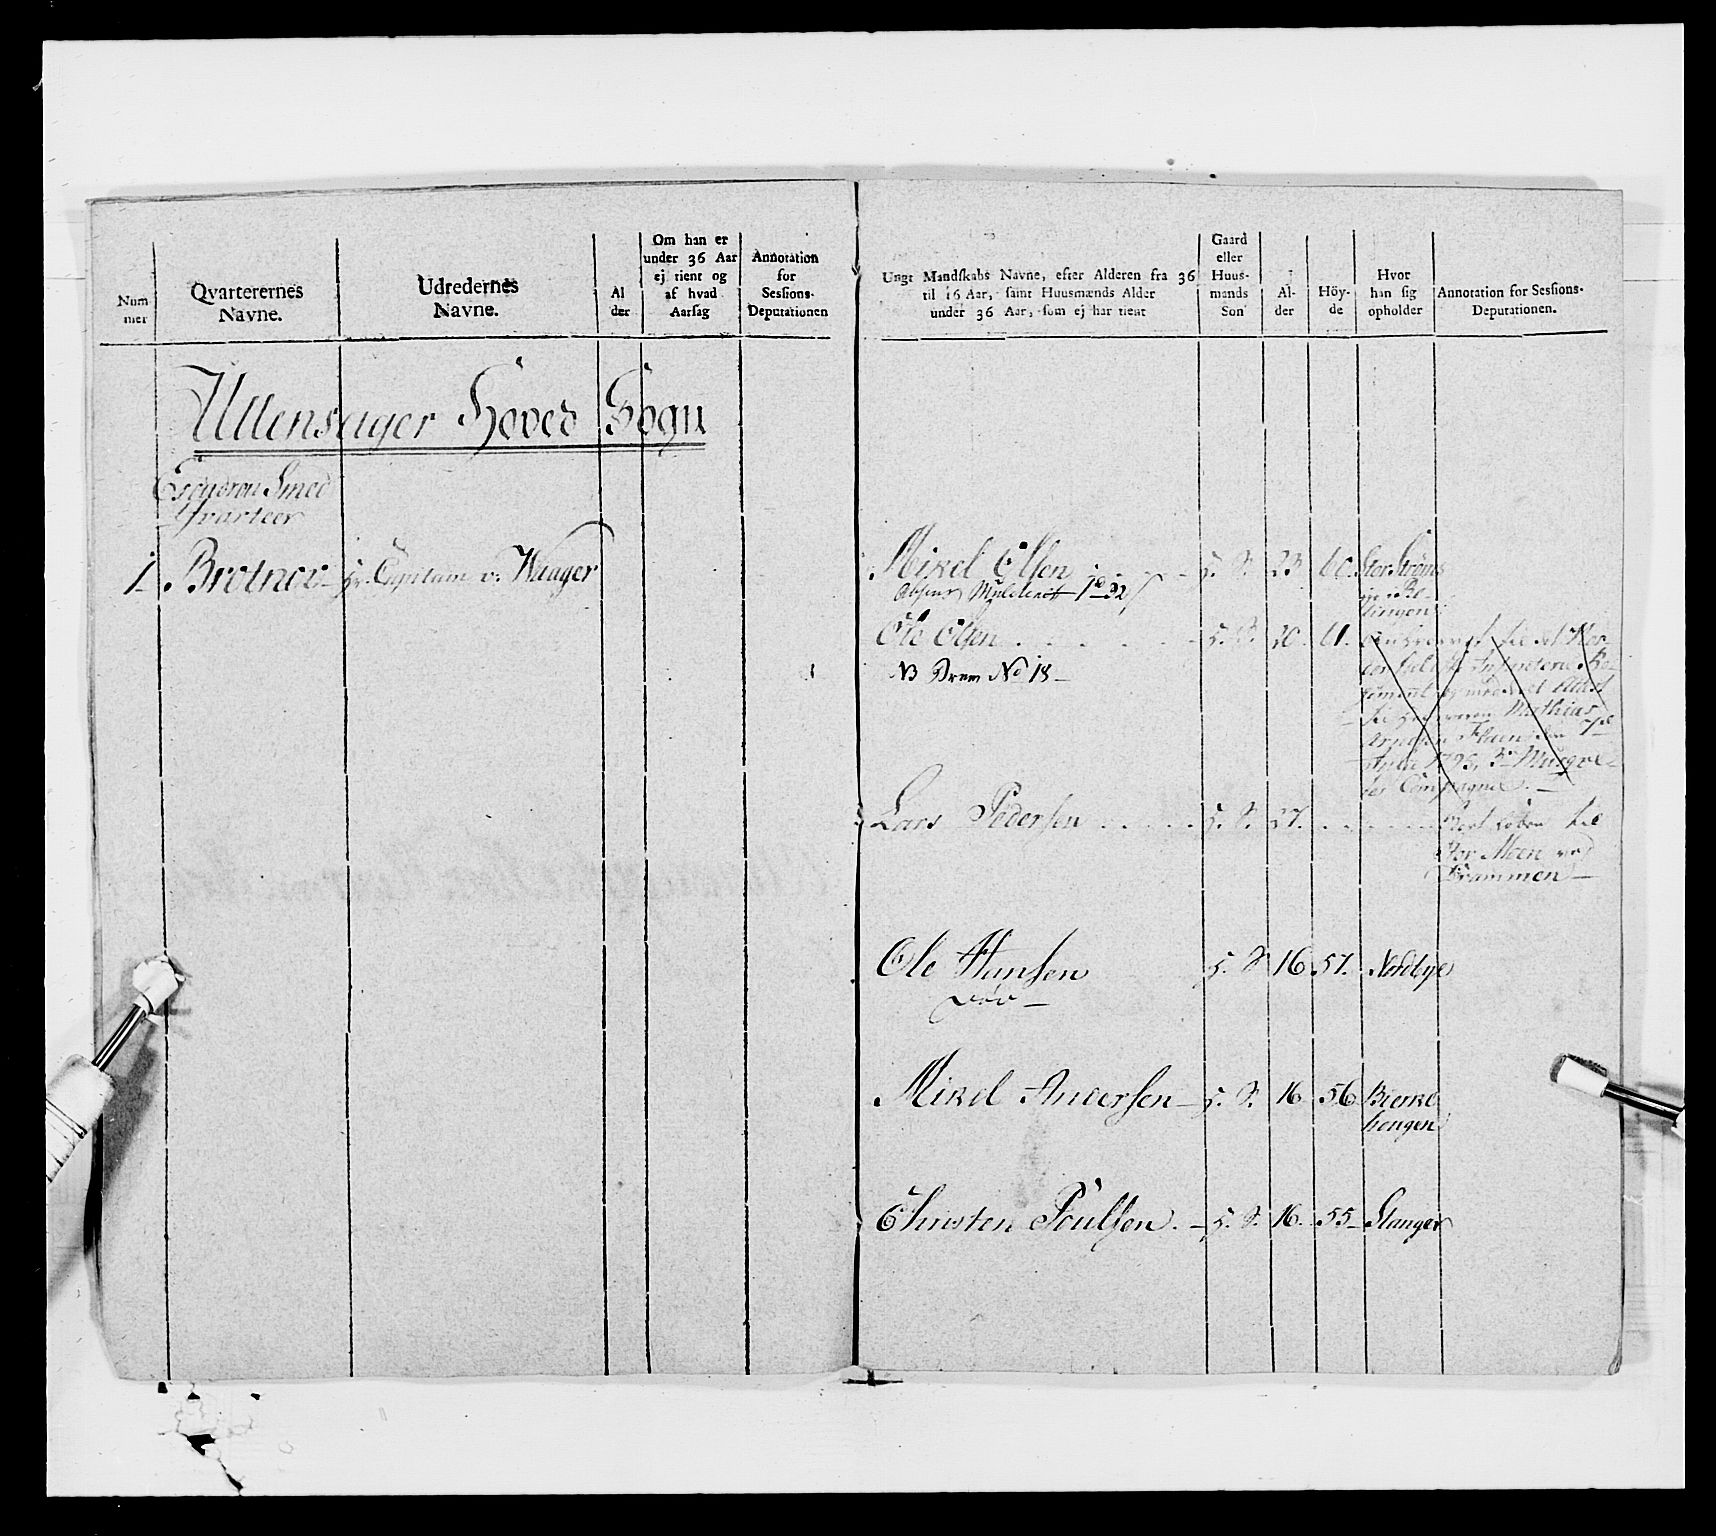 Num
mer
Qvarterernes
Navne.
Udredernes
Navne.
Al
der
Om han er
under 36 Aar
ej tient og
af hvad
Aarsag
Annotation
for
Sessions-
Deputationen
Ullensager Hoved Sogn
Esqvdron Smed
Qvarteer
1. Brotnov - Hr. Capitain v: Waager
Ungt Mandskabs Navne, efter Alderen fra 36
til 16 Aar, samt Huusmænds Alder
under 36 Aar, som ej har tient
Gaard
eller
Huus-
mands
Søn
Al-
der
Höy-
de
Hvor
han sig
opholder
Annotation for Sessions-
Deputationen.
Mikel Olsen - H. S. 23. 60.
Ole Olsen H. S. 20. 61.
NB Drum No 18 -
Mathias
1795, 3die
Compagnie. -
Lars Pedersen H. S. 27. til
Moen ved
Drammen -
Ole Hansen H. S. 16. 57. Nordbye
død -
Mikel Andersen - H. S. 16 56 Bierke
hougen
Christen Poulsen. - H. S. 16. 55 - Stanger